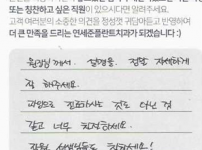 또는 칭찬하고 싶은 직원이 있으시다면 알려주세요.
고객 여러분의 소중한 의견을 정성껏 귀담아듣고 반영하여
더 큰 만족을 드리는 연세준플란트치과가 되겠습니다 :)
원장님께서 설명을 정말 자세하게
잘 해주세요.
과잉으로 진료하시는 것도 아닌 것
같고 너무 친절하세요.
직원 선생님들도 친절하세요!